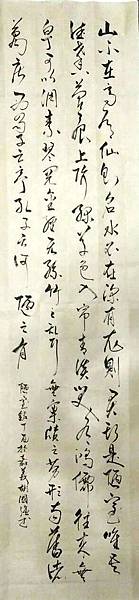 山不在高有仙則名水不在深有龍則靈斯是陋室唯吾
德馨苔痕上階綠草色入簾青談笑有鴻儒往來無
白丁可以調素琴閱金經無絲竹之亂耳無案牘之勞形南陽諸
葛廬西蜀子雲亭孔子云何陋之有
陋室銘丁酉於嘉義